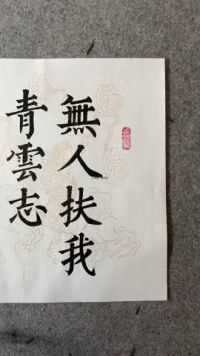 無人扶我
青雲志